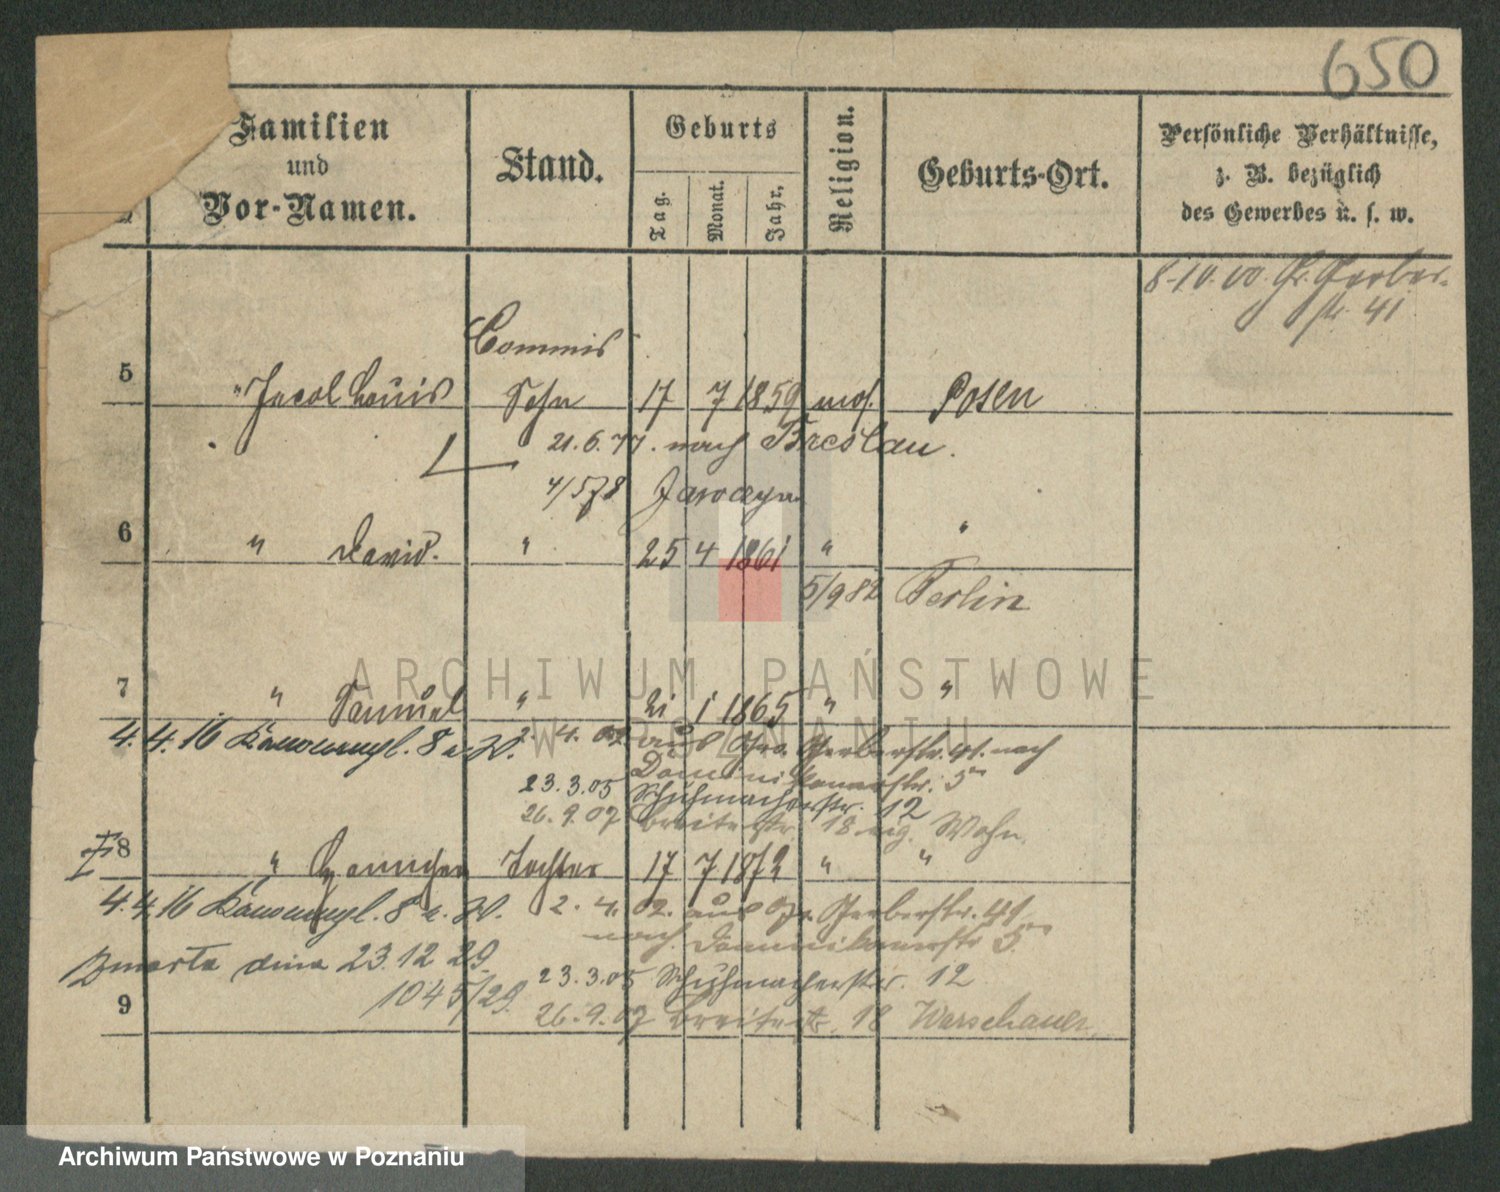 650
Familien
und
Vor-Namen.
Stand.
Geburts
Tag.
Monat.
Jahr.
Religion.
Geburts-Ort.
Persönliche Verhältnisse,
z. B. bezüglich
des Gewerbes u. s. w.
8-10.00. Gr. Gerber-
str. 41
Commis
5 " Jacob Louis Sohn 17 7 1859 mos. Posen
21.6.77. nach Breslau.
4/5 78
6 " David. " 25 4 1861 " "
5/9 82 Berlin
7 " Samuel " 21 1 1865 " "
4.4.16 8 a. W. 2. 4. 02 aus Gr. Gerberstr. 41. nach
Dominikanerstr. 5
23.3.05 Schuhmacherstr. 12
26.9.07 Breitestr. 18 eig. Wohn.
8 " Tochter 17 7 1872 " "
4.4.16 8 a. W. 2. 4. 02. aus Gr. Gerberstr. 41
nach Dominikanerstr 5
Zmarła dnia 23.12 29. 23.3.05 Schuhmacherstr. 12
1045/29.
9 26.9.07 Breitestr. 18 Warschauer
ARCHIWUM PAŃSTWOWE
W POZNANIU
Archiwum Państwowe w Poznaniu